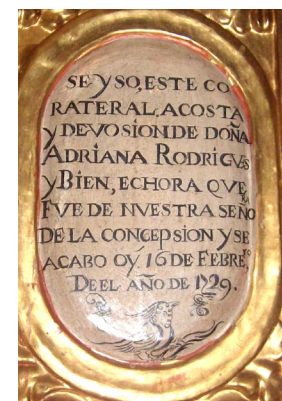 SE YSO, ESTE CO
RATERAL, ACOSTA
Y DEVOSION DE DOÑA
ADRIANA RODRIGUES
Y BIEN, ECHORA QUE
FUE DE NUESTRA SEÑORA
DE LA CONCEPSION Y SE
ACABO OY 16 DE FEBREº
DEEL AÑO DE 1729.